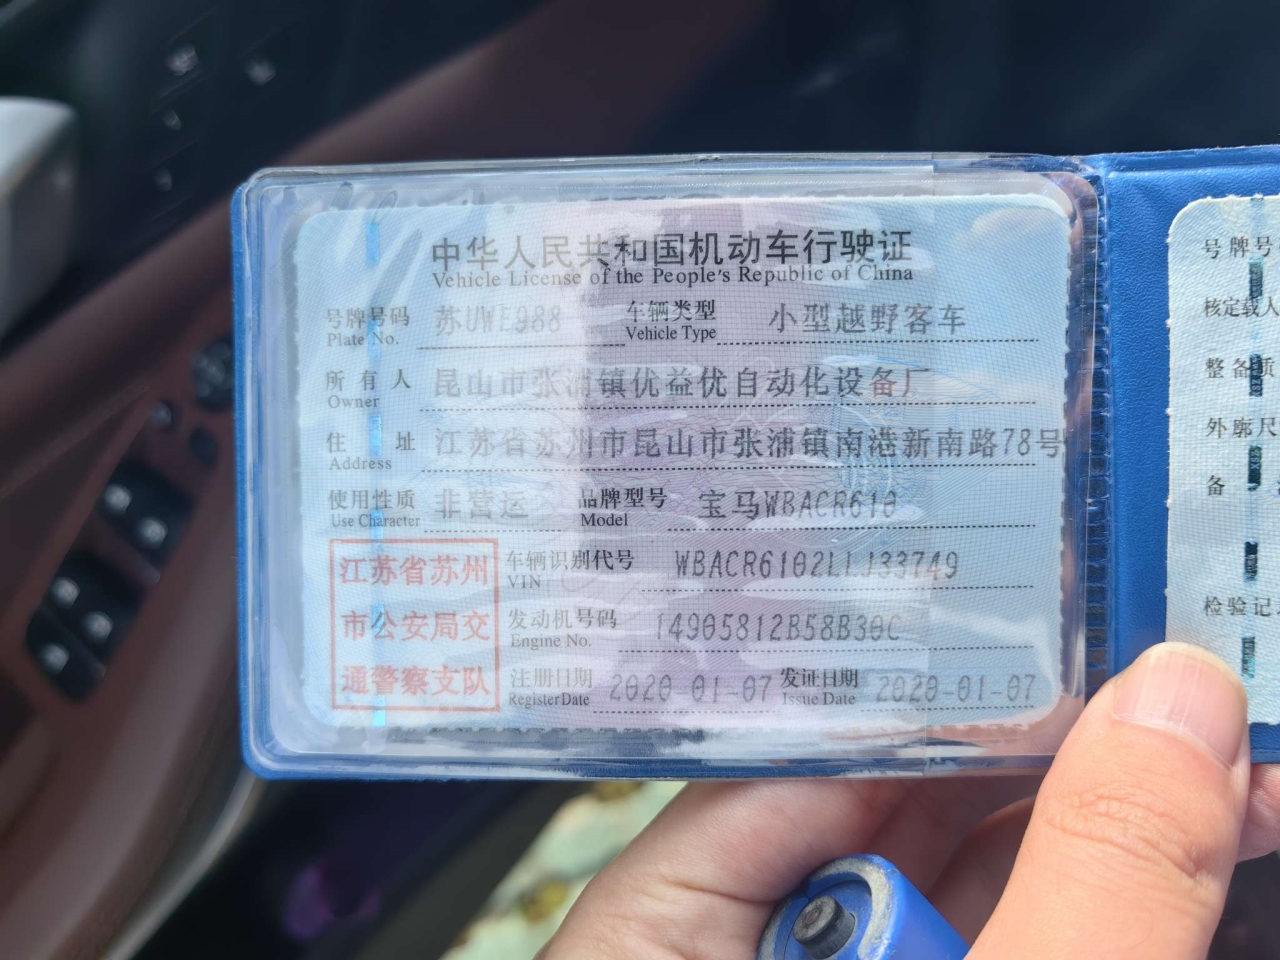 中华人民共和国机动车行驶证
Vehicle License of the People's Republic of China
号牌号码 苏UWE988 车辆类型 小型越野客车
Plate No. Vehicle Type
所有人 昆山市张浦镇优益优自动化设备厂
Owner
住址 江苏省苏州市昆山市张浦镇南港新南路78号
Address
使用性质 非营运 品牌型号 宝马WBACR610
Use Character Model
车辆识别代号 WBACR6102LLJ33749
VIN
发动机号码 14905812B58B30C
Engine No.
注册日期 2020-01-07 发证日期 2020-01-07
Register Date Issue Date
江苏省苏州
市公安局交
通警察支队
号牌号
核定载人
整备质
外廓尺
备
检验记